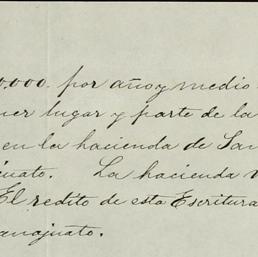 0.000. por año y medio
lugar y parte de la
en la hacienda de San
juato. La hacienda
El redito de esta Escritura
anajuato.